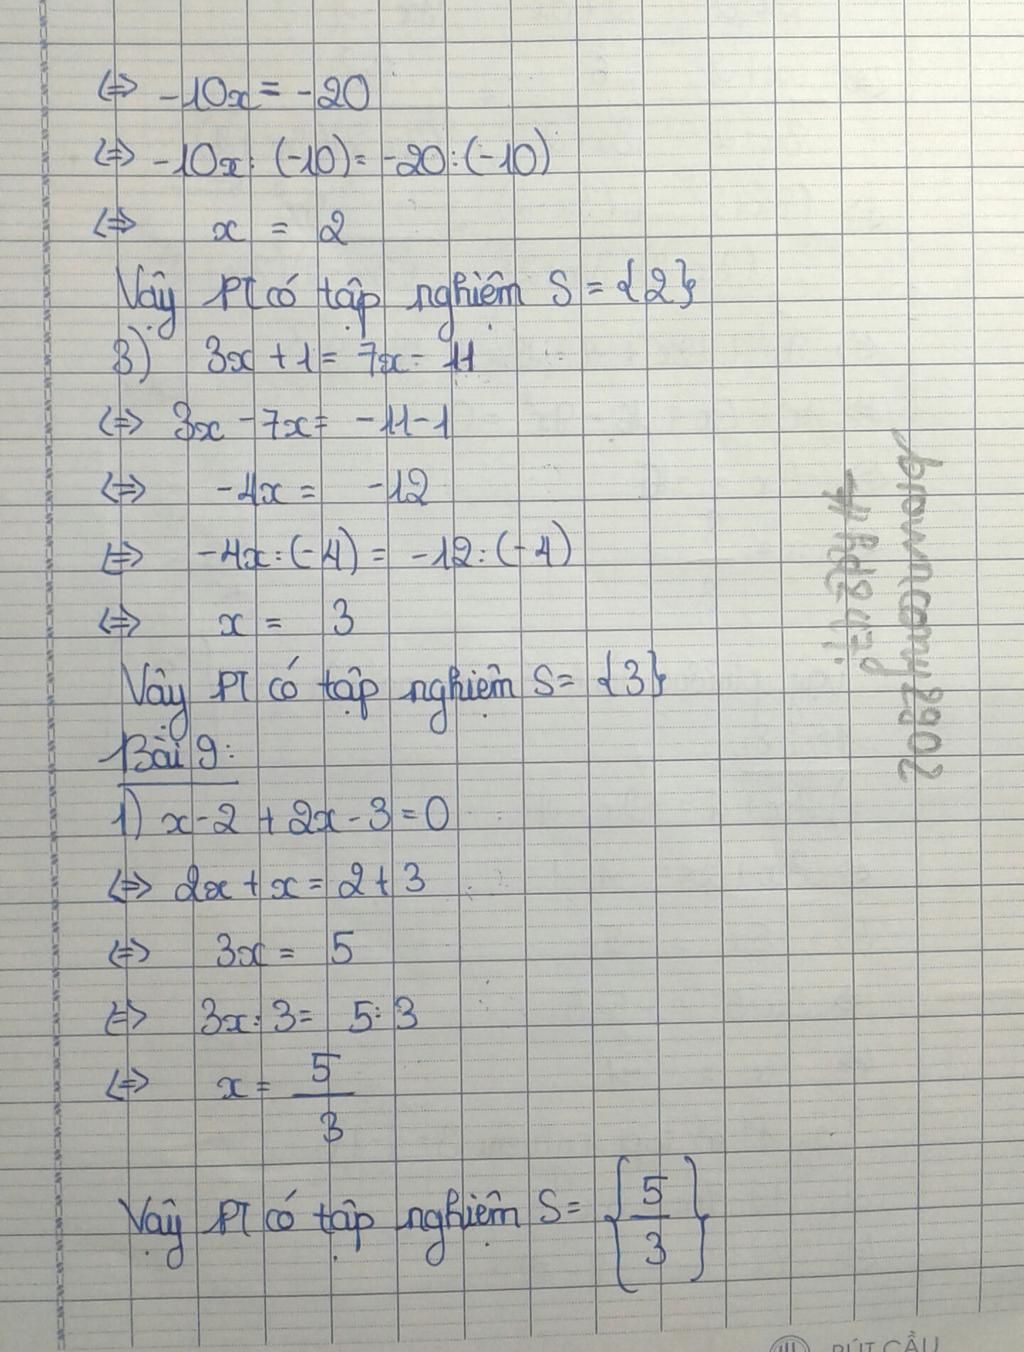 <=> -10x = -20
<=> -10x : (-10) = -20 : (-10)
<=> x = 2
Vậy PT có tập nghiệm S = {2}
3) 3x + 1 = 7x - 11
<=> 3x - 7x = -11 - 1
<=> -4x = -12
<=> -4x : (-4) = -12 : (-4)
<=> x = 3
Vậy PT có tập nghiệm S = {3}
Bài 9:
1) x - 2 + 2x - 3 = 0
<=> 2x + x = 2 + 3
<=> 3x = 5
<=> 3x : 3 = 5 : 3
<=> x = 5/3
Vậy PT có tập nghiệm S = {5/3}
BÚT CẦU